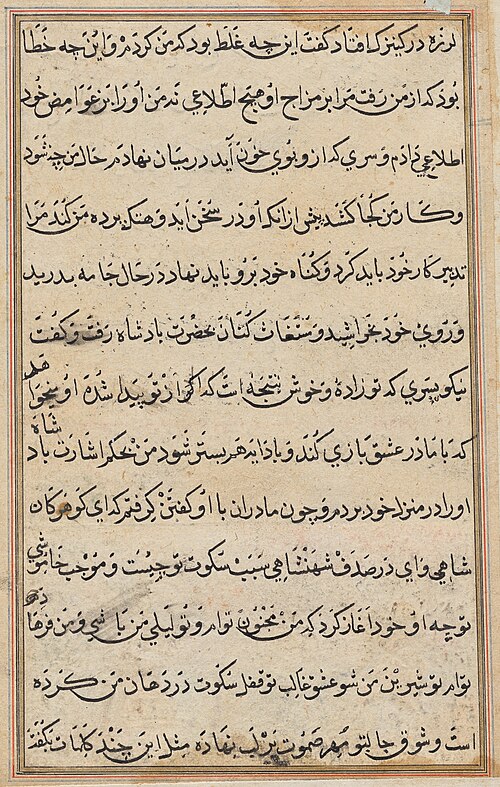 لرزه در کنیزک افتاد گفت این چه غلط بود که من کردم و این چه خطا
بود که از من رفت مرا بر مزاج او هیچ اطلاعی نه من او را بر غوامض خود
اطلاعی دادم و سری که از و بوی خون آید در میان نهادم حال من چه شود
و کار من کجا کشد پیش از انکه او در سخن آید و هتک پرده من کند مرا
تدبیر کار خود باید کرد و گناه خود برو باید نهاد در حال جامه بدرید
و روی خود بخراشید و ستغاث کنان بحضرت بادشاه رفت و گفت
نیکو پسری که تو زادهٔ و خوش نتیجه است که از تو پیدا شده او میخواهد
که با مادر عشق بازی کند و با دایه هم بستر شود من بحکم اشارت بادشاه
او را در منزل خود بردم و چون مادران با او گفتن گرفتم که ای گوهر کان
شاهی و ای در صدف شهنشاهی سبب سکوت تو چیست و موجب خاموشی
تو چه او خود اغاز کرد که من مجنون توام و تو لیلی من باشی و من فرهاد
توام تو شیرین من شو عشق غالب تو قفل سکوت در دهان من کرده
است و شوق جالب تو مهر صموت بر لب نهاده مثل این چند کلمات بگفت